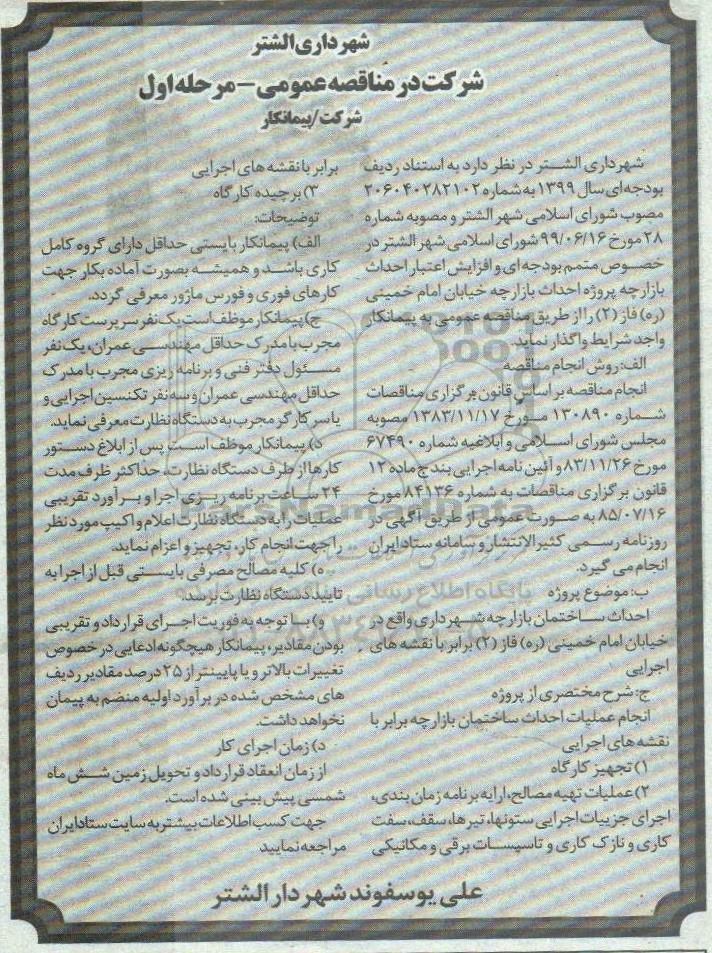 شهرداری الشتر
شرکت در مناقصه عمومی - مرحله اول
شرکت/پیمانکار
شهرداری الشتر در نظر دارد به استناد ردیف
بودجه ای سال ۱۳۹۹ به شماره ۲۰۶۰۴۰۲۸۲۱۰۲
مصوب شورای اسلامی شهر الشتر و مصوبه شماره
۲۸ مورخ ۹۹/۰۶/۱۶ شورای اسلامی شهر الشتر در
خصوص متمم بودجه ای و افزایش اعتبار احداث
بازارچه پروژه احداث بازارچه خیابان امام خمینی
(ره) فاز (۲) را از طریق مناقصه عمومی به پیمانکار
واجد شرایط واگذار نماید.
الف: روش انجام مناقصه
انجام مناقصه بر اساس قانون برگزاری مناقصات
شماره ۱۳۰۸۹۰ مورخ ۱۳۸۳/۱۱/۱۷ مصوبه
مجلس شورای اسلامی و ابلاغیه شماره ۶۷۴۹۰
مورخ ۸۳/۱۱/۲۶ و آئین نامه اجرایی بند ج ماده ۱۲
قانون برگزاری مناقصات به شماره ۸۴۱۳۶ مورخ
۸۵/۰۷/۱۶ به صورت عمومی از طریق آگهی در
روزنامه رسمی کثیرالانتشار و سامانه ستاد ایران
انجام می گیرد.
ب: موضوع پروژه
احداث ساختمان بازارچه شهرداری واقع در
خیابان امام خمینی (ره) فاز (۲) برابر با نقشه های
اجرایی
ج: شرح مختصری از پروژه
انجام عملیات احداث ساختمان بازارچه برابر با
نقشه های اجرایی
۱) تجهیز کارگاه
۲) عملیات تهیه مصالح، ارایه برنامه زمان بندی،
اجرای جزییات اجرایی ستونها، تیرها، سقف، سفت
کاری و نازک کاری و تاسیسات برقی و مکانیکی
برابر با نقشه های اجرایی
۳) برچیده کارگاه
توضیحات:
الف) پیمانکار بایستی حداقل دارای گروه کامل
کاری باشد و همیشه بصورت آماده بکار جهت
کارهای فوری و فورس ماژور معرفی گردد.
ج) پیمانکار موظف است یک نفر سرپرست کارگاه
مجرب با مدرک حداقل مهندسی عمران، یک نفر
مسئول دفتر فنی و برنامه ریزی مجرب با مدرک
حداقل مهندسی عمران و سه نفر تکنسین اجرایی و
یا سرکارگر مجرب به دستگاه نظارت معرفی نماید.
د) پیمانکار موظف است پس از ابلاغ دستور
کارها از طرف دستگاه نظارت، حداکثر ظرف مدت
۲۴ ساعت برنامه ریزی اجرا و برآورد تقریبی
عملیات را به دستگاه نظارت اعلام و اکیپ مورد نظر
را جهت انجام کار، تجهیز و اعزام نماید.
ه) کلیه مصالح مصرفی بایستی قبل از اجرا به
تایید دستگاه نظارت برسد.
و) با توجه به فوریت اجرای قرارداد و تقریبی
بودن مقادیر، پیمانکار هیچگونه ادعایی در خصوص
تغییرات بالاتر و یا پایینتر از ۲۵ درصد مقادیر ردیف
های مشخص شده در برآورد اولیه منضم به پیمان
نخواهد داشت.
د) زمان اجرای کار
از زمان انعقاد قرارداد و تحویل زمین شش ماه
شمسی پیش بینی شده است.
جهت کسب اطلاعات بیشتر به سایت ستاد ایران
مراجعه نمایید
علی یوسفوند شهردار الشتر
ParsNamadData